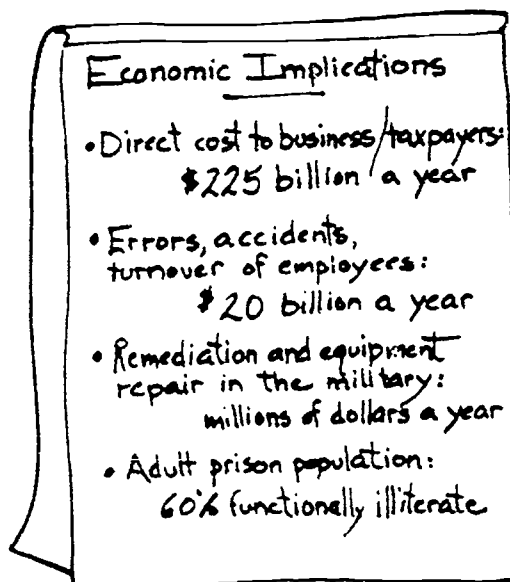 Economic Implications
• Direct cost to business/taxpayers:
$225 billion a year
• Errors, accidents,
turnover of employees:
$20 billion a year
• Remediation and equipment
repair in the military:
millions of dollars a year
• Adult prison population:
60% functionally illiterate